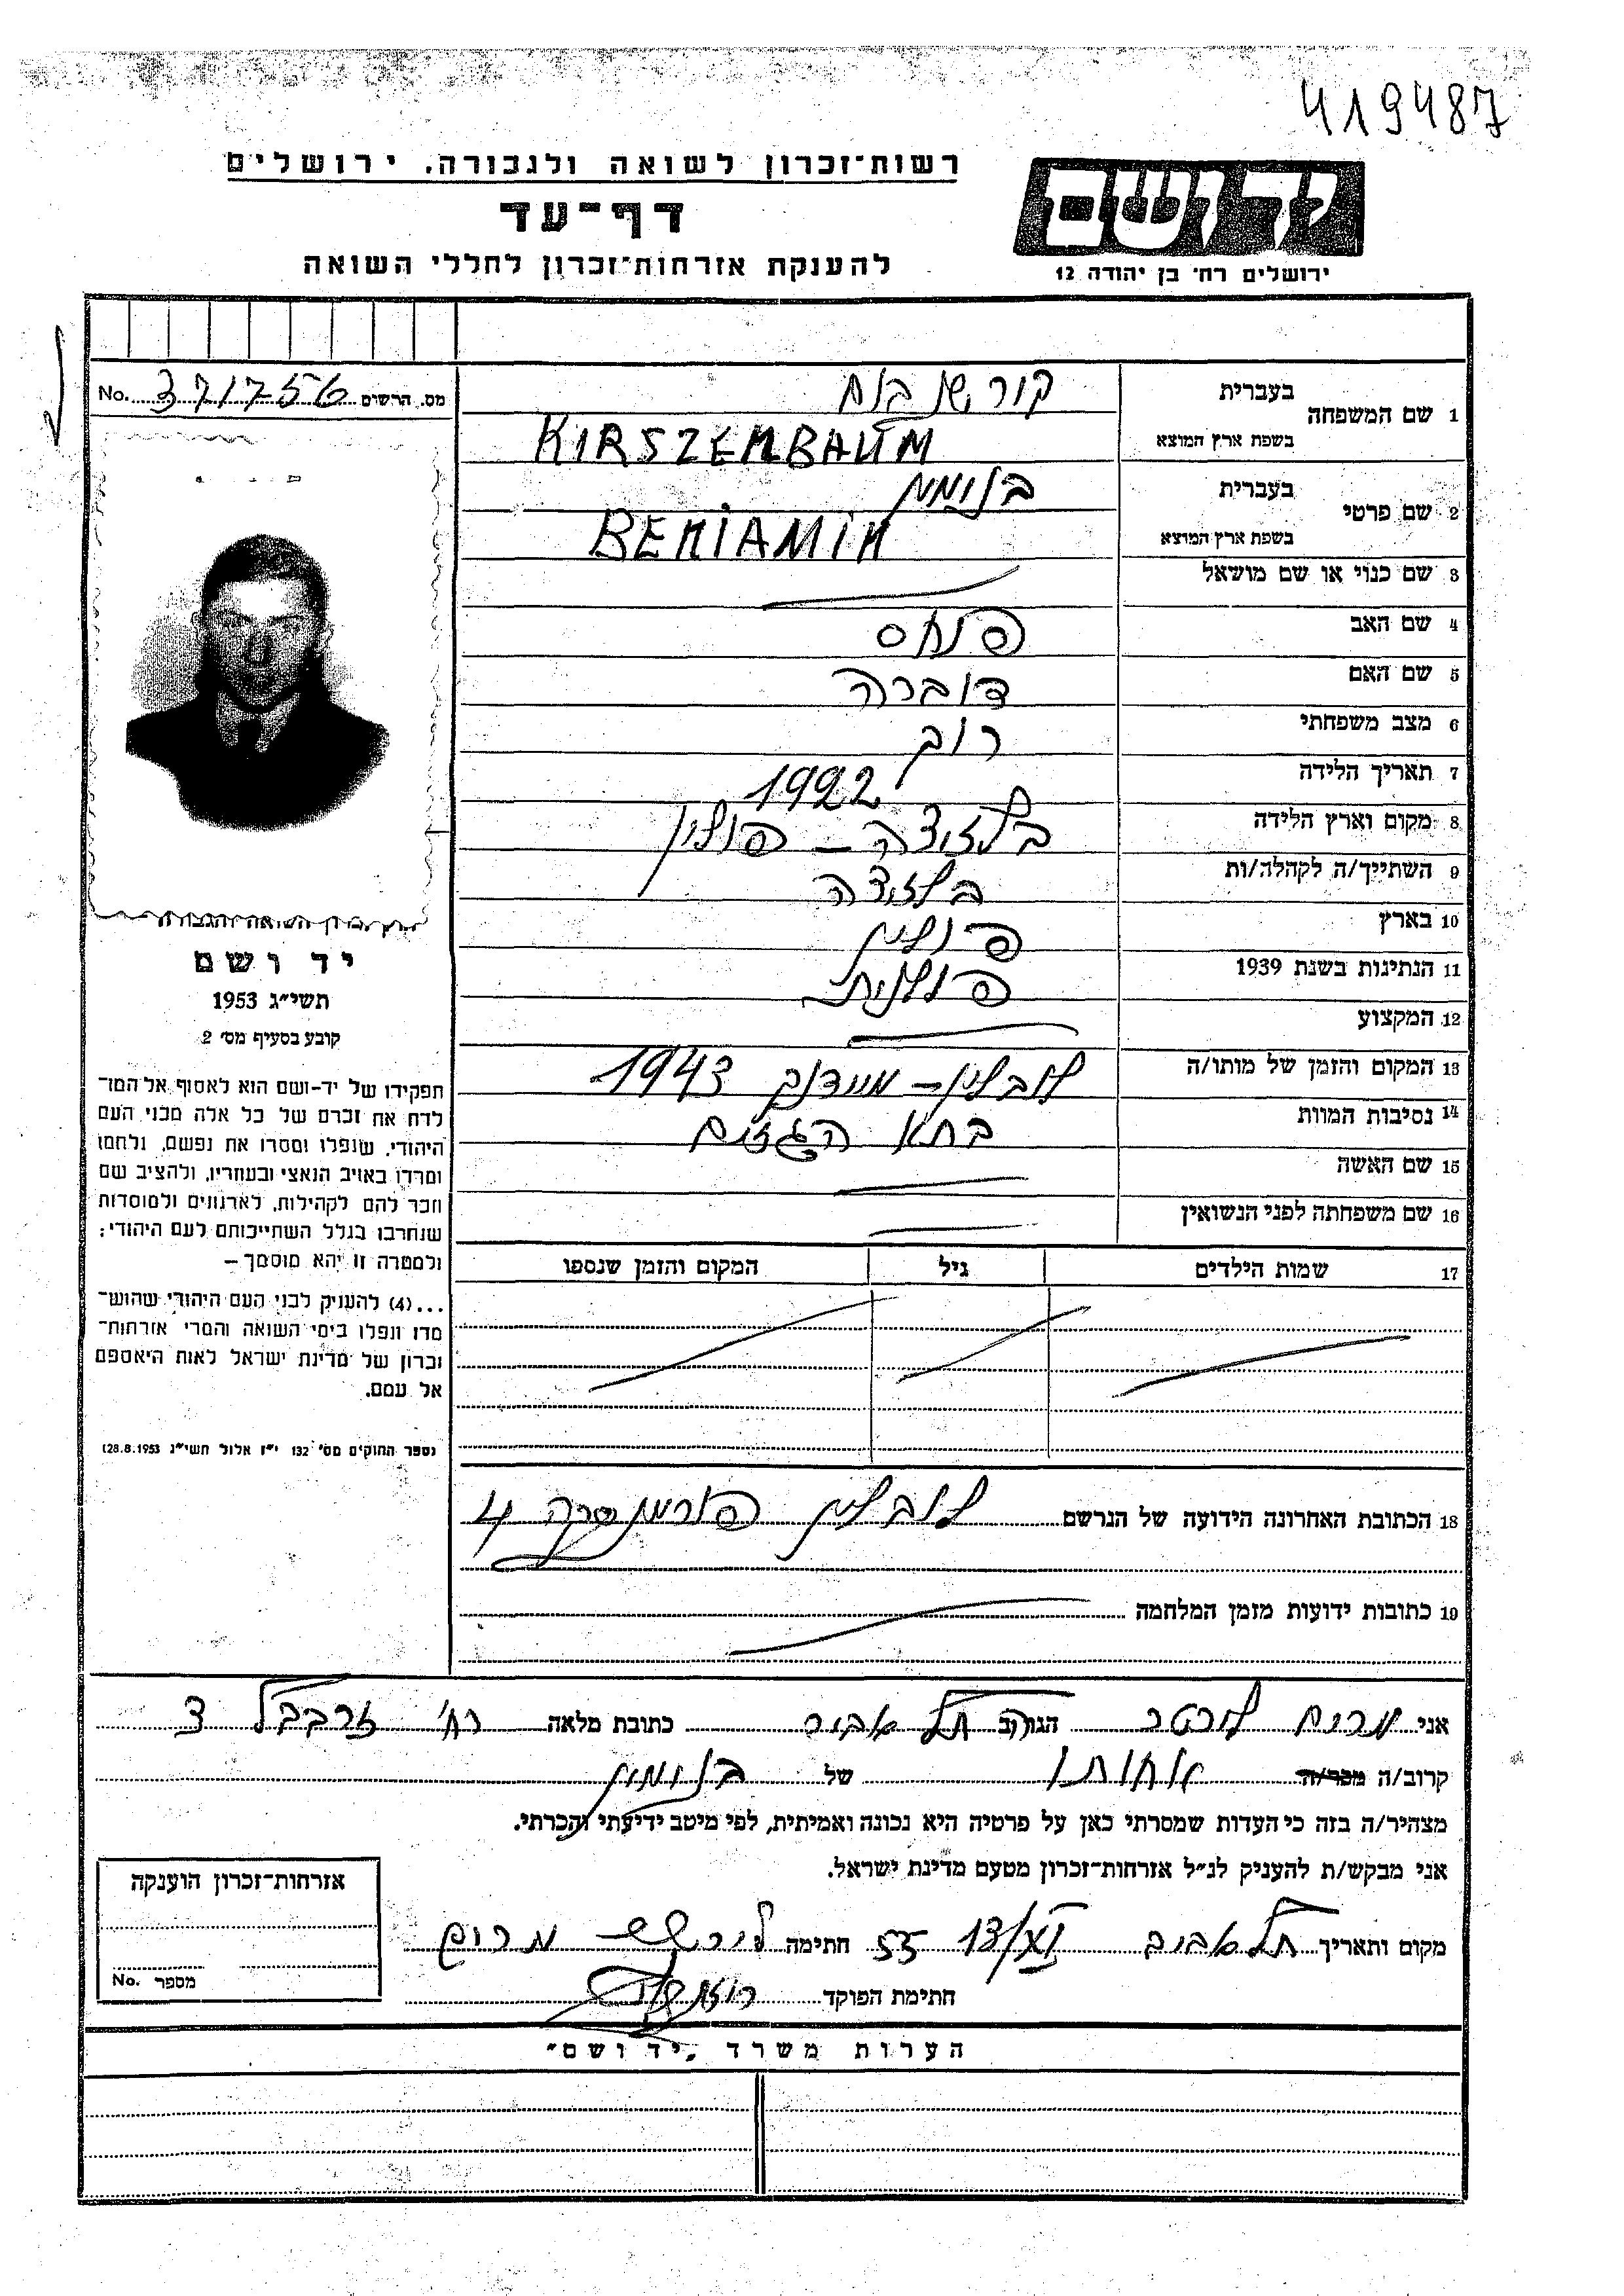 419487
רשות־זכרון לשואה ולגבורה. ירושלים
ידושם
דף־עד
להענקת אזרחות־זכרון לחללי השואה
ירושלים רח׳ בן יהודה 12
מס. הרשום 371756 No.
1 שם המשפחה בעברית קורשנבוים
בשפת ארץ המוצא KIRSZEMBAUM
2 שם פרטי בעברית בנימין
בשפת ארץ המוצא BENIAMIN
3 שם כנוי או שם מושאל
4 שם האב פנחס
5 שם האם דוברה
6 מצב משפחתי רווק
7 תאריך הלידה 1922
8 מקום וארץ הלידה בלזיצה – פולין
9 השתייך/ה לקהלה/ות בלזיצה
10 בארץ פולין
11 הנתינות בשנת 1939 פולנית
12 המקצוע
13 המקום והזמן של מותו/ה לובלין – מיידנק 1943
14 נסיבות המוות בתא הגזים
15 שם האשה
16 שם משפחתה לפני הנשואין
17 שמות הילדים גיל המקום והזמן שנספו
רשות־זכרון השואה והגבורה
יד ושם
תשי״ג 1953
קובע בסעיף מס׳ 2
תפקידו של יד־ושם הוא לאסוף אל המו־
לדת את זכרם של כל אלה מבני העם
היהודי, שנפלו ומסרו את נפשם, נלחמו
ומרדו באויב הנאצי ובעוזריו, ולהציב שם
וזכר להם לקהילות, לארגונים ולמוסדות
שנחרבו בגלל השתייכותם לעם היהודי;
ולמטרה זו יהא מוסמך –
...(4) להעניק לבני העם היהודי שהוש־
מדו ונפלו בימי השואה והמרי אזרחות־
זכרון של מדינת ישראל לאות היאספם
אל עמם.
(ספר החוקים מס׳ 132 י״ז אלול תשי״ג 28.8.1953)
18 הכתובת האחרונה הידועה של הנרשם לובלין 4
19 כתובות ידועות מזמן המלחמה
אני מרים לורטר הגר/ה תל אביב כתובת מלאה רח׳ זרבבל 3
קרוב/ה מכר/ה אחותו של בנימין
מצהיר/ה בזה כי העדות שמסרתי כאן על פרטיה היא נכונה ואמיתית, לפי מיטב ידיעתי והכרתי.
אני מבקש/ת להעניק לנ״ל אזרחות־זכרון מטעם מדינת ישראל.
מקום ותאריך תל אביב 13/XI 55 חתימה מרים
חתימת הפוקד
אזרחות־זכרון הוענקה
מספר No.
הערות משרד „יד ושם״